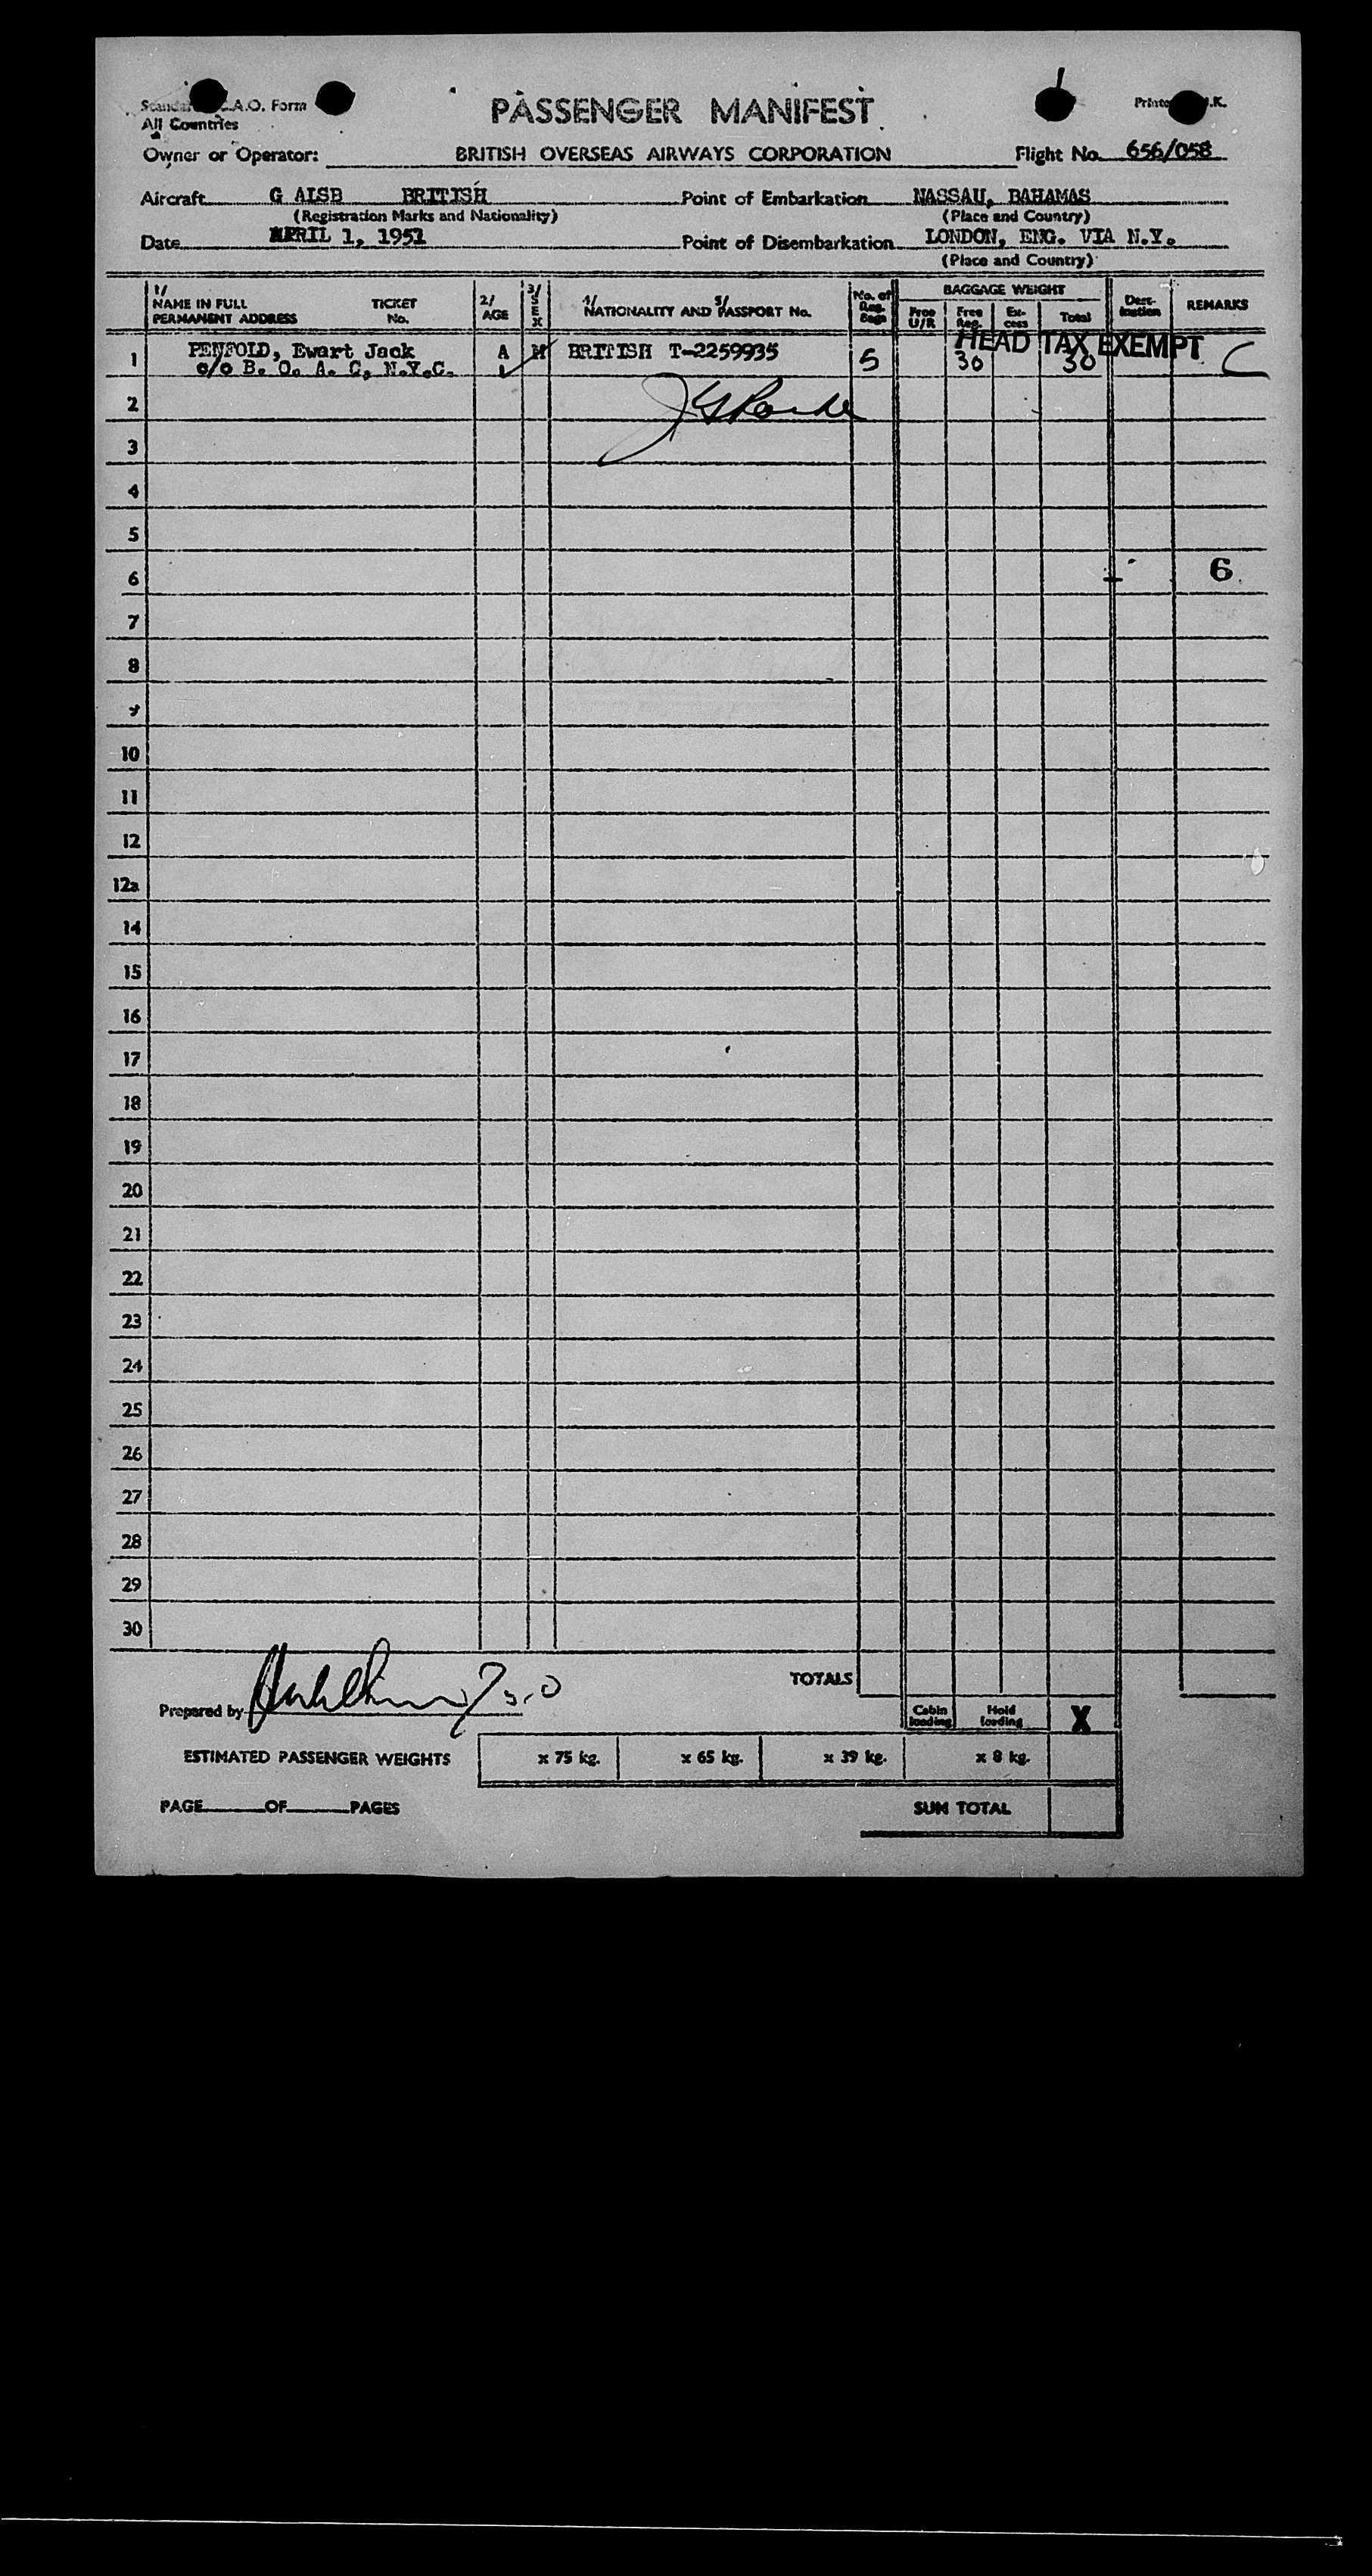 All Countries
PASSENGER MANIFEST
Owner or Operator: BRITISH OVERSEAS AIRWAYS CORPORATION Flight No. 656/058
Aircraft G ALSB BRITISH Point of Embarkation NASSAU, BAHAMAS
(Registration Marks and Nationality) (Place and Country)
Date APRIL 1, 1951 Point of Disembarkation LONDON, ENG. VIA N.Y.
(Place and Country)
1/ NAME IN FULL PERMANENT ADDRESS TICKET No. 2/ AGE 3/ SEX 4/ NATIONALITY AND 5/ PASSPORT No. No. of Reg. Bags BAGGAGE WEIGHT Free U/R Free Reg. Ex-cess Total Dest-ination REMARKS
HEAD TAX EXEMPT
1 PENFOLD, Ewart Jack A M BRITISH T-2259935 5 30 30 C
c/o B. O. A. C, N.Y.C.
2
3
4
5
6 6
7
8
9
10
11
12
12a
14
15
16
17
18
19
20
21
22
23
24
25
26
27
28
29
30
TOTALS
Prepared by
Cabin loading Hold loading X
ESTIMATED PASSENGER WEIGHTS x 75 kg. x 65 kg. x 39 kg. x 8 kg.
PAGE OF PAGES SUM TOTAL